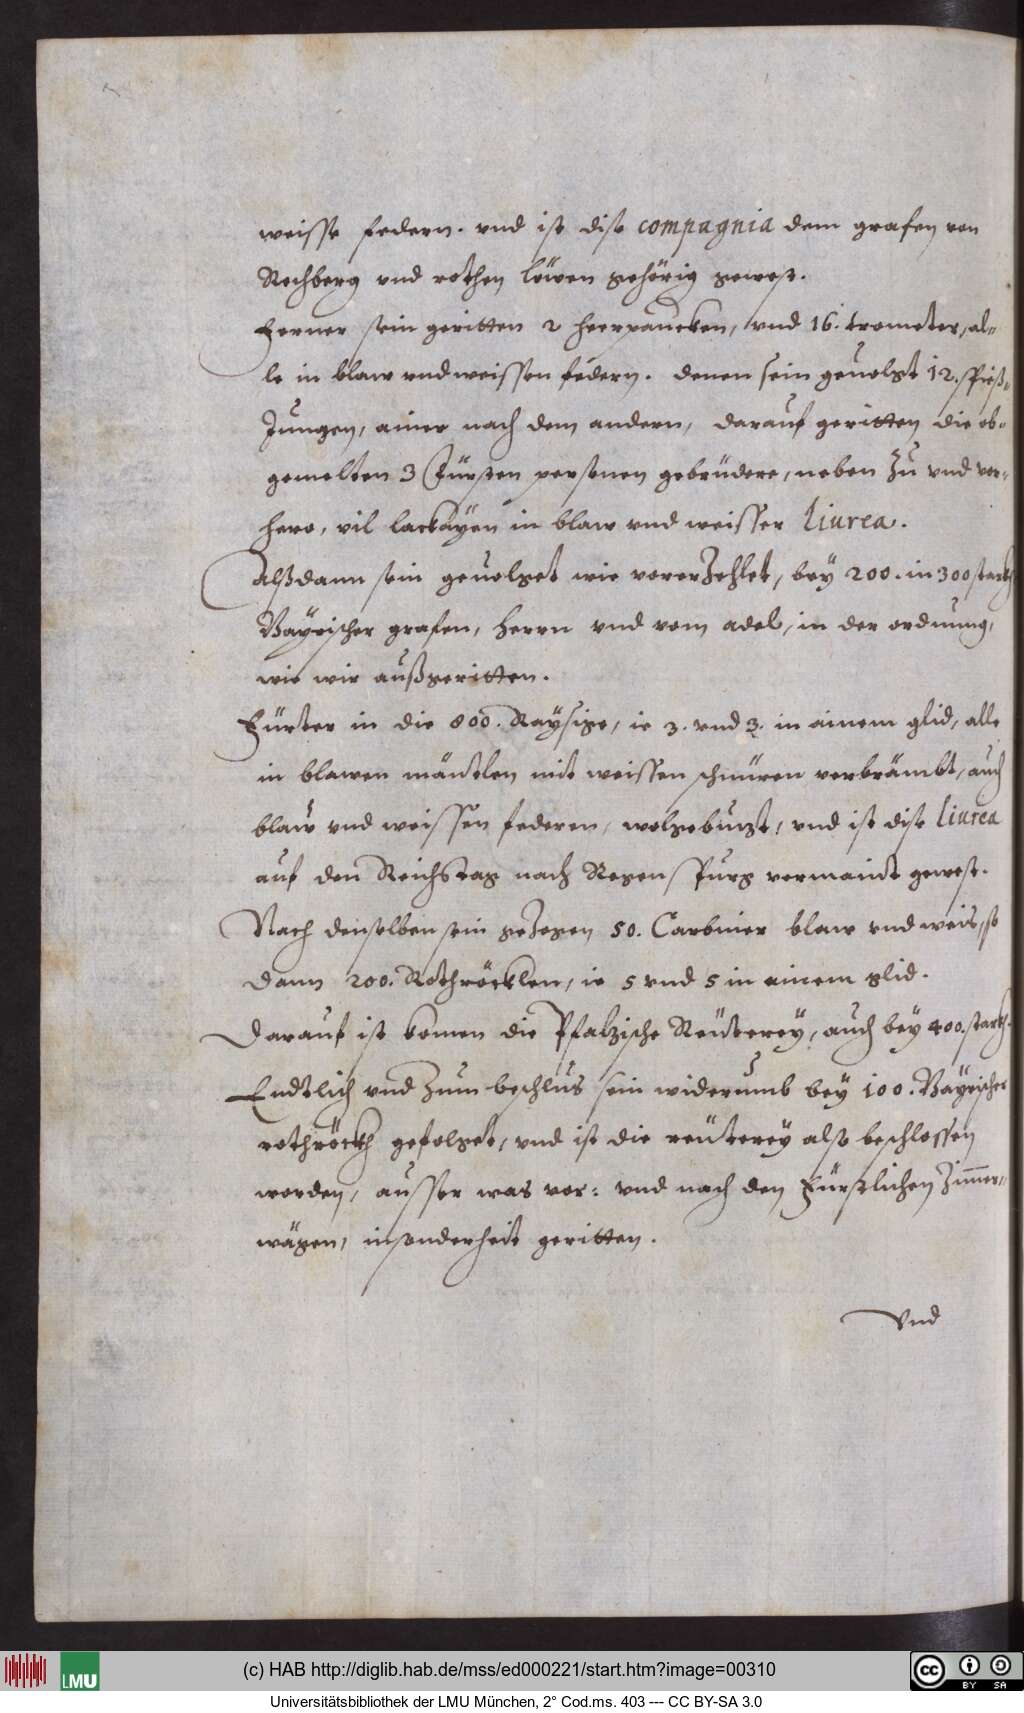 weisse federn. vnd ist dise compagnia dem grafen von
Rechberg vnd rothen löwen gehörig gewest.
Ferner sein geritten 2 heerpaucken, vnd 16. trometer, al-
le in blaw vnd weissen federn. denen sein geuolgt 12. spieß-
Jungen, ainer nach dem andern, darauf geritten die ob-
gemelten 3 Fürsten personen gebrüdere, neben zu vnd vor-
hero, vil lackayen in blaw vnd weisser liurea.
Alßdann sein geuolget wie vorerzehlet, bey 200. in 300 starkh
Bayrischer grafen, herrn vnd vom adel, in der ordnung,
wie wir außgeritten.
Fürter in die 800. Raysige, ie 3. vnd 3. in ainem glid, alle
in blawen mäntlen mit weissen schnüren verbrämbt, auch
blaw vnd weissen federen, wolgebutzt, vnd ist dise liurea
auf den Reichstag nach Regenspurg vermaint gewest.
Nach denselben sein gezogen 50. Carbiner blaw vnd weis, so
dann 200. Rothröcklen, ie 5 vnd 5 in ainem glid.
Darauf ist komen die Pfalzische Reüterey, auch bey 400. starkh.
Endtlich vnd zum beschlus sein widerumb bey 100. Bayrischer
rothröckh gefolget, vnd ist die reüterey also beschlossen
worden, ausser was vor: vnd nach den Fürstlichen Zimmer-
wägen, insonderheit geritten.
Vnd
(c) HAB http://diglib.hab.de/mss/ed000221/start.htm?image=00310
LMU
cc BY SA
Universitätsbibliothek der LMU München, 2° Cod.ms. 403 --- CC BY-SA 3.0